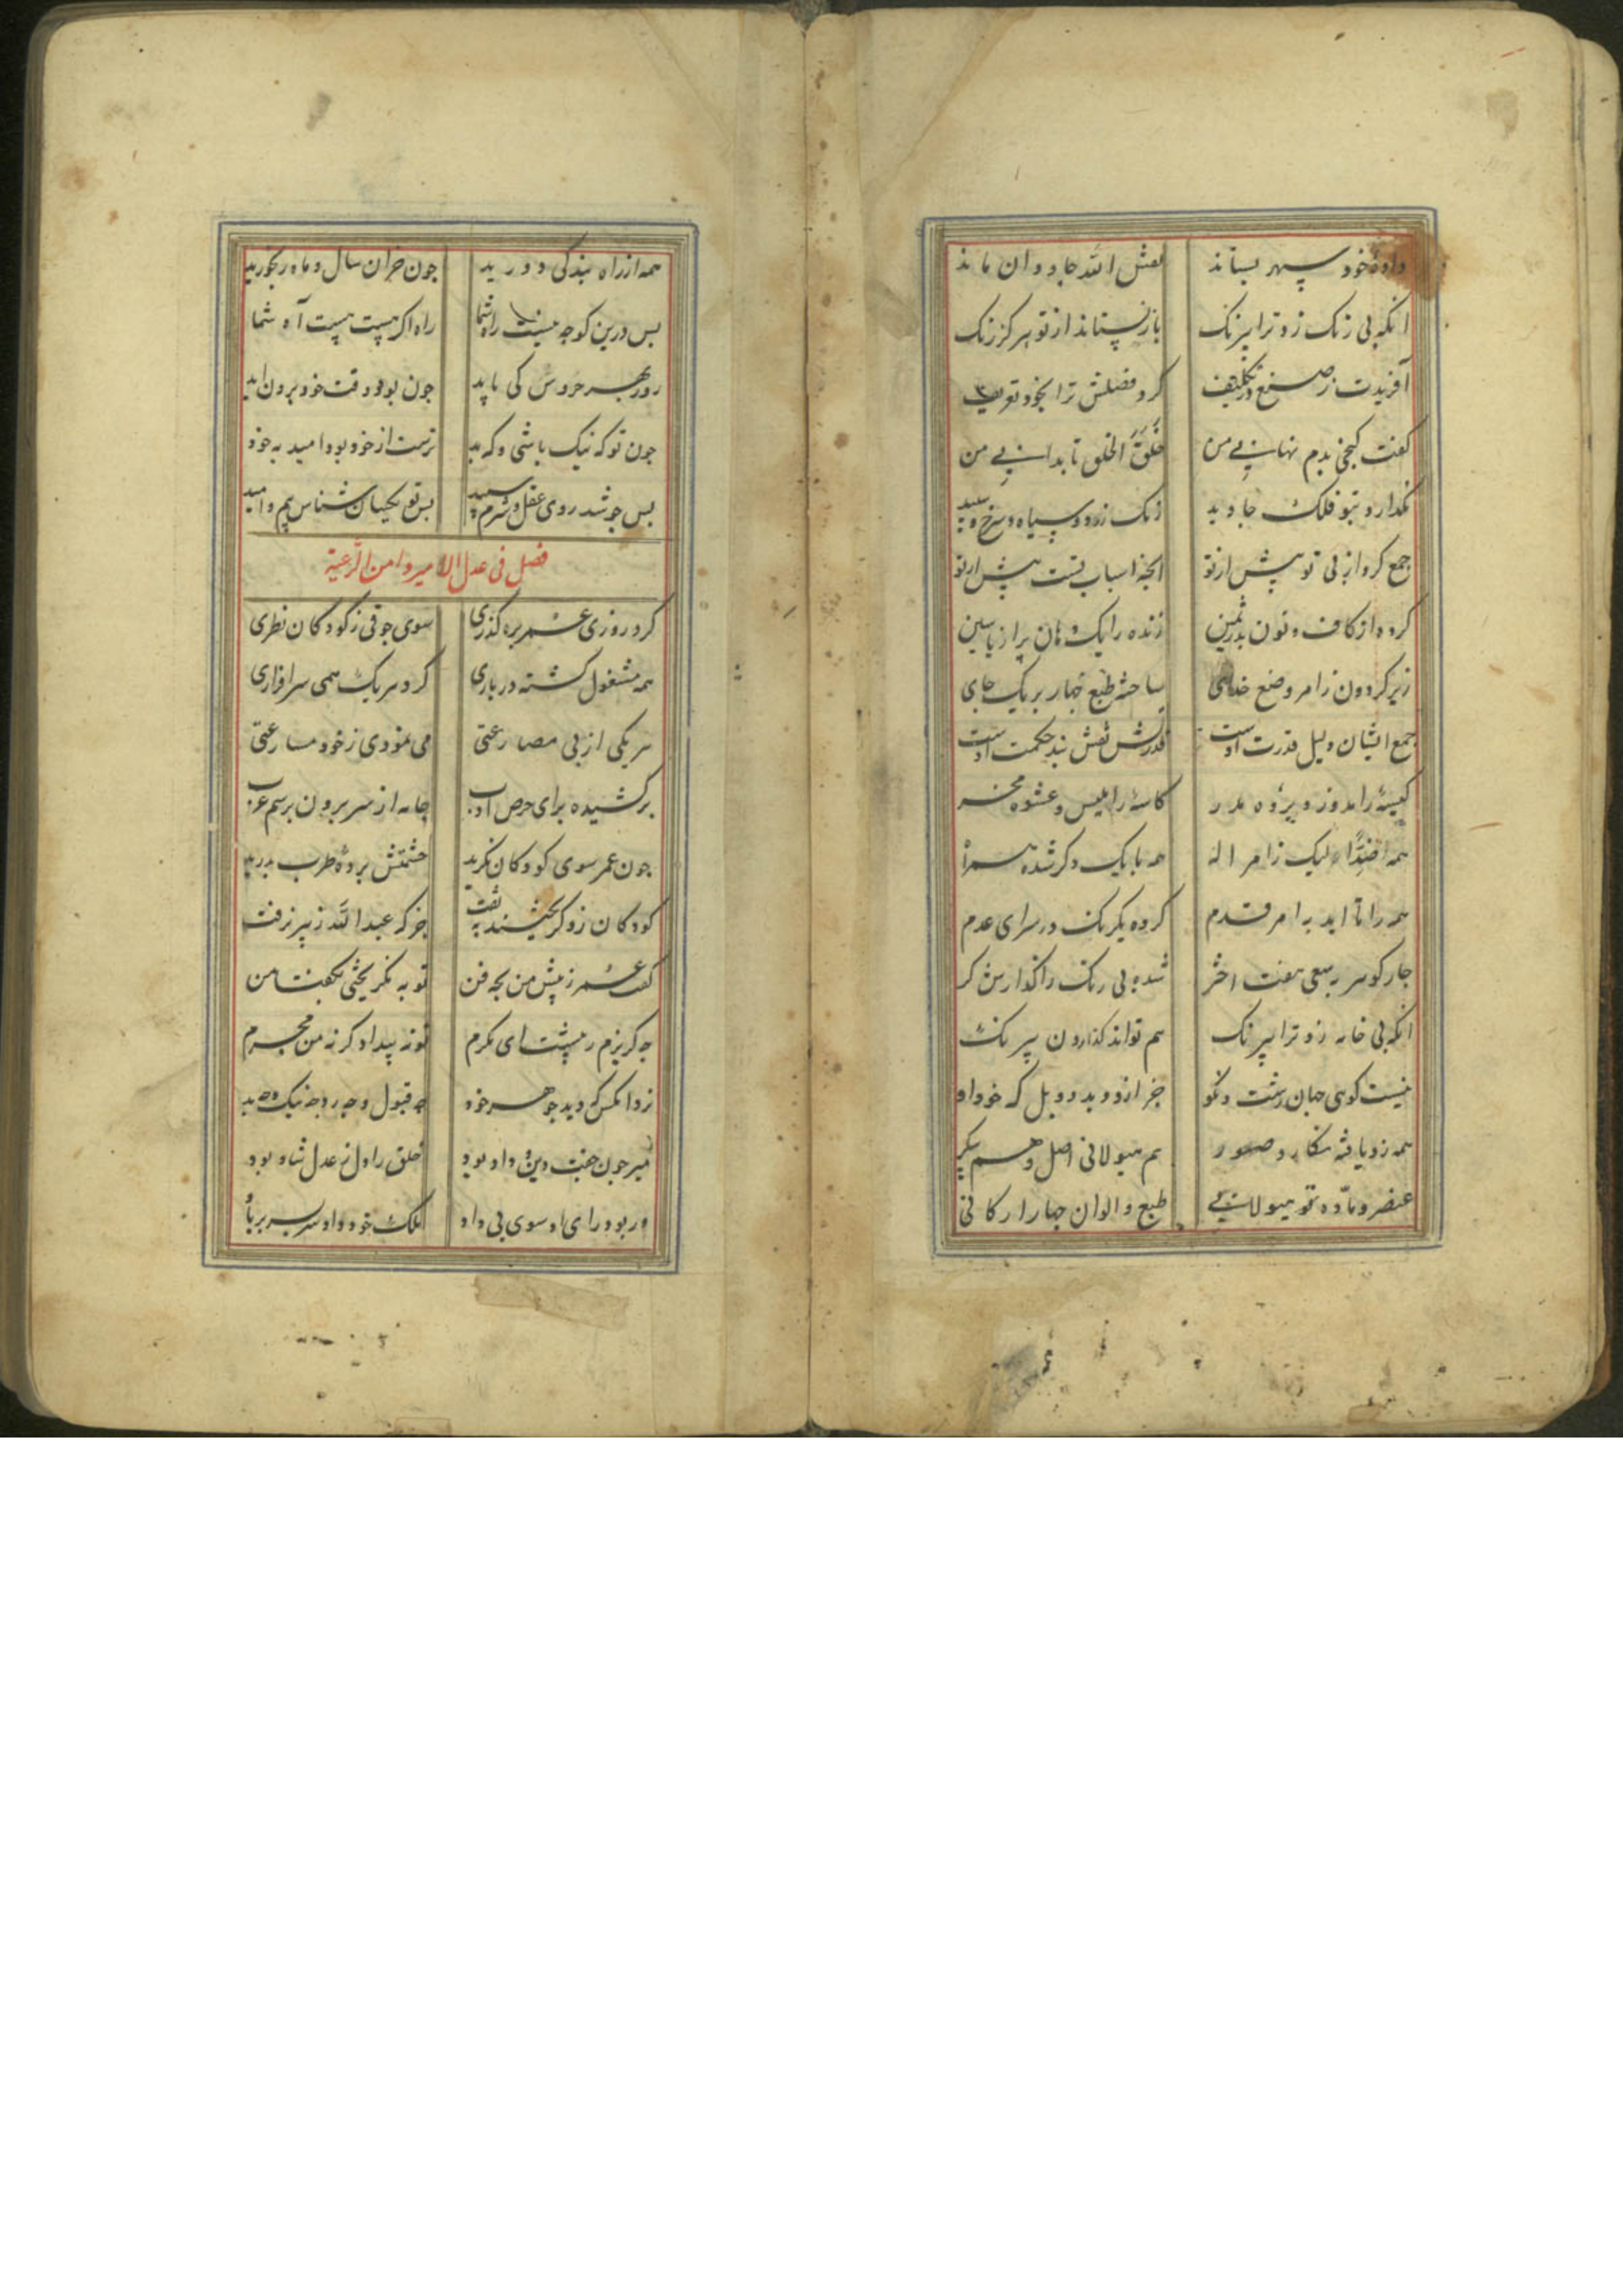 دادهٔ خود سپهر بستاند نقش الله جاودان ماند
انکه بی رنک زد ترا نیرنک باز نستاند از تو هرکز رنک
آفریدت ز صنع در تکلیف کرد فضلش ترا بخود تعریف
کفت کنجی بدم نهانی من خلق الخلق تا بدانی من
نکدارد بتو فلک جاوید رنک زرد و سیاه و سرخ و سپید
جمع کرد از پی تو پیش از تو انچه اسباب تست پیش از تو
کرده از کاف و نون بدر ثمین دیده را یک دهان پر از یاسین
زیر کردون ز امر و صنع خدای ساخته طبع چهار بر یک جای
جمع ایشان دلیل قدرت اوست قدرتش نقش بند حکمت اوست
کیسهٔ را مدوز و پرده مدر کاسهٔ را ملیس و عشوه مخر
همه اضداد لیک ز امر اله همه با یک دکر شده همراه
همه را تا ابد به امر قدم کرده یکرنک در سرای عدم
چار کوهر به سعی هفت اختر شده بی رنک را کذارش کر
انکه بی خامه زد ترا نیرنک هم تواند کذاردن بیرنک
نیست کوی جهان زشت و نکو جز ازو و بدو و بل که خود او
همه زو یافته نکار و صور هم هیولانی اصل و هم پیکر
عنصر و مادّه تو هیولانی طبع و الوان چهار ارکانی
همه از راه بندکی دورید چون خران سال و ماه رنجورید
بس درین کوچه نیست راه شما راه اکر هست هست آه شما
روز بهر خروش کی باید چون بود وقت خود برون اید
چون تو که نیک باشی و که بد ترست از خود بود امید به خود
بس چو شد روی عقل و شرم سپید بس تو یکسان شناس بیم و امید
فصل فی عدل الامیر و امن الرّعیة
کرد روزی عمر بره کذری سوی جوقی ز کودکان نظری
همه مشغول کشته در بازی کرد هر یک همی سرافرازی
هر یکی از پی مصارعتی می نمودی ز خود مسارعتی
برکشیده برای حرص ادب جامه از سر برون برسم عرب
چون عمر سوی کودکان نکرید حشمتش پردهٔ طرب بدرید
کودکان زو کریختند به تفت جز که عبدالله زبیر نرفت
کفت عمر ز پیش من بچه فن تو به نکریختی بکفت من
چه کریزم ز پیشت ای مکرم تو نه بیدادکر نه من مجرم
زد انکس که دید جوهر خود چه قبول و چه رد چه نیک و چه بد
میر چون جفت دین و داد بود خلق را دل ز عدل شاد بود
ور بود رای او سوی بی داد ملک خود داد سر بسر بر باد